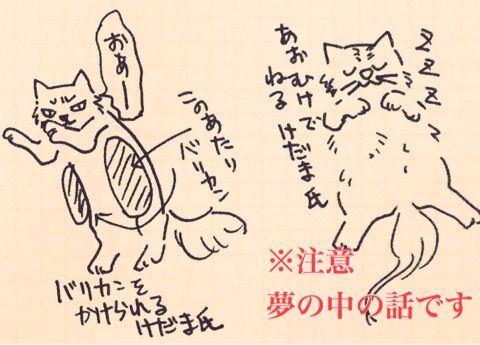 おあーー
このあたり
バリカン
バリカンを
かけられる
けだま氏
あおむけで
ねる けだま氏
Z
Z
Z
Z
※注意
夢の中の話です